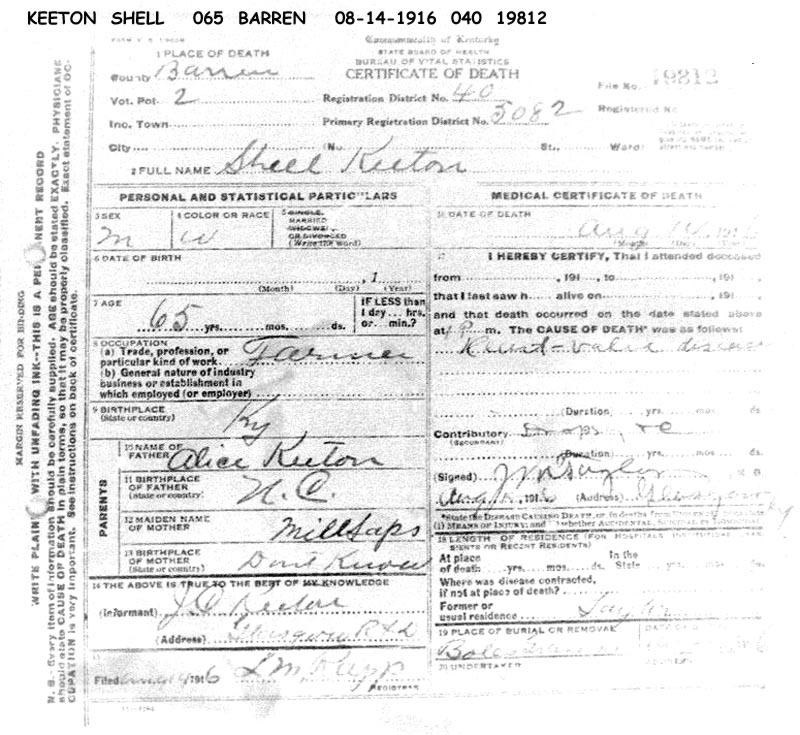 KEETON SHELL 065 BARREN 08-14-1916 040 19812
Commonwealth of Kentucky
STATE BOARD OF HEALTH
BUREAU OF VITAL STATISTICS
CERTIFICATE OF DEATH
1 PLACE OF DEATH
County Barren
Vot. Pct 2
Inc. Town
City (No. St., Ward)
Registration District No. 40
Primary Registration District No. 5082
File No. 19812
Registered No
2 FULL NAME Shell Keeton
PERSONAL AND STATISTICAL PARTICULARS
3 SEX M
4 COLOR OR RACE W
5 SINGLE, MARRIED WIDOWED OR DIVORCED (Write the word)
6 DATE OF BIRTH
, 1
(Month) (Day) (Year)
7 AGE 65 yrs. mos. ds.
IF LESS than 1 day hrs. or min.?
8 OCCUPATION
(a) Trade, profession, or particular kind of work Farmer
(b) General nature of industry business or establishment in which employed (or employer)
9 BIRTHPLACE (State or country) Ky
PARENTS
10 NAME OF FATHER Alice Keeton
11 BIRTHPLACE OF FATHER (state or country) N.C.
12 MAIDEN NAME OF MOTHER Millsaps
13 BIRTHPLACE OF MOTHER (State or country) Dont Know
14 THE ABOVE IS TRUE TO THE BEST OF MY KNOWLEDGE
(Informant) J D Keeton
(Address)
Filed 1916
REGISTRAR
MEDICAL CERTIFICATE OF DEATH
16 DATE OF DEATH
Aug 191
(Month) (Day)
17 I HEREBY CERTIFY, That I attended deceased
from , 191 , to , 191 ,
that I last saw h alive on , 191 ,
and that death occurred on the date stated above
at P m. The CAUSE OF DEATH* was as follows:
valve disease
(Duration) yrs. mos. ds.
Contributory
(SECONDARY)
(Duration) yrs. mos. ds.
(Signed) Taylor
1916 (Address) Glasgow Ky
*State the DISEASE CAUSING DEATH, or, in deaths from
(1) MEANS OF INJURY; and (2) whether ACCIDENTAL, SUICIDAL or
18 LENGTH OF RESIDENCE (FOR HOSPITALS, INSTITUTIONS, TRANSIENTS OR RECENT RESIDENTS)
At place of death yrs. mos. ds.
In the State yrs. mos. ds.
Where was disease contracted, if not at place of death?
Former or usual residence
19 PLACE OF BURIAL OR REMOVAL
20 UNDERTAKER
ADDRESS
MARGIN RESERVED FOR BINDING
WRITE PLAINLY WITH UNFADING INK--THIS IS A PERMANENT RECORD
N. B.- Every item of information should be carefully supplied. AGE should be stated EXACTLY. PHYSICIANS
should state CAUSE OF DEATH in plain terms, so that it may be properly classified. Exact statement of OC-
CUPATION is very important. See instructions on back of certificate.